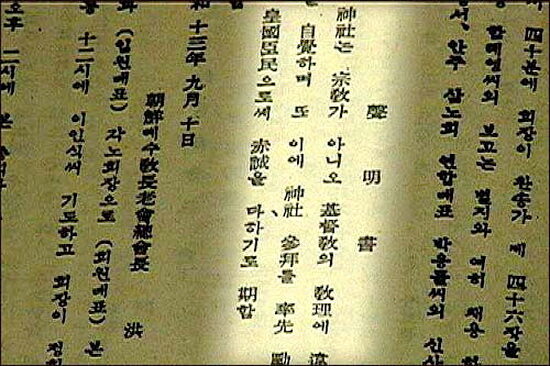 四十분에 회장이 찬송가 제 四十六장을
씨의 보고는 별지와 여히 채용
안주 삼노회 연합대표 박응률씨의 신사
聲明書
神社는 宗敎가 아니오 基督敎의 敎理에 違
自覺하며 또 이에 神社 參拜를 率先 勵
皇國臣民으로써 赤誠을 다하기로 期함
和 十三年 九月 十日
朝鮮예수敎長老會總會長 洪
(임원대표) 각노회장으로 (회원대표) 본
十二시에 이인식씨 기도하고 회장이
오후 二시에 본